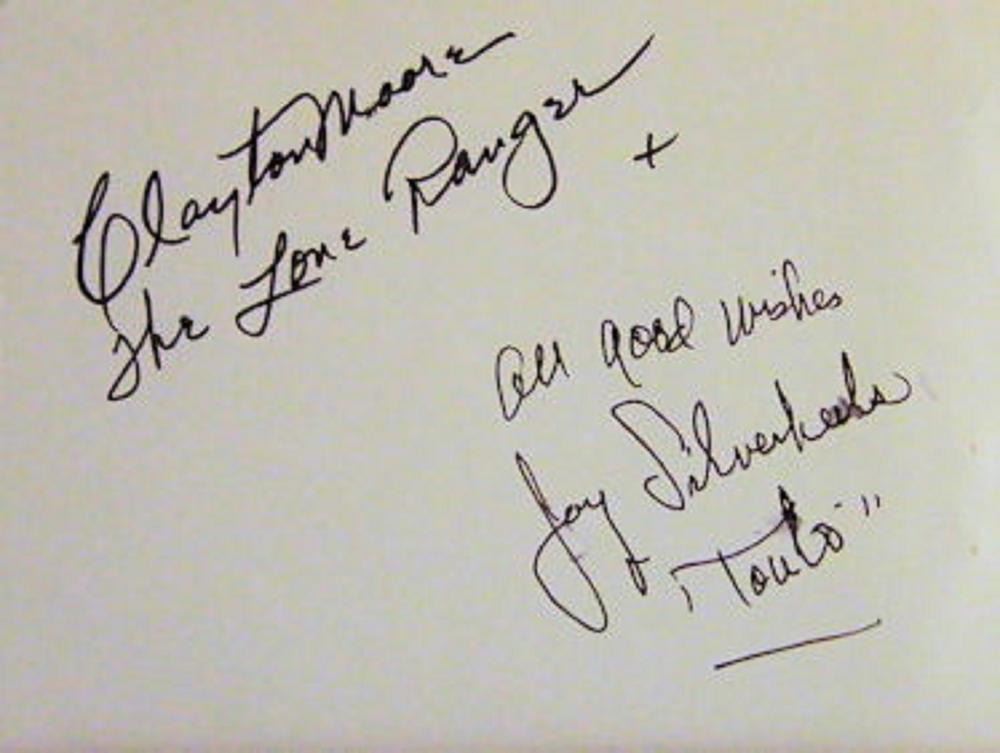 Clayton Moore
The Lone Ranger
+
All good wishes
Jay Silverheels
"Tonto"